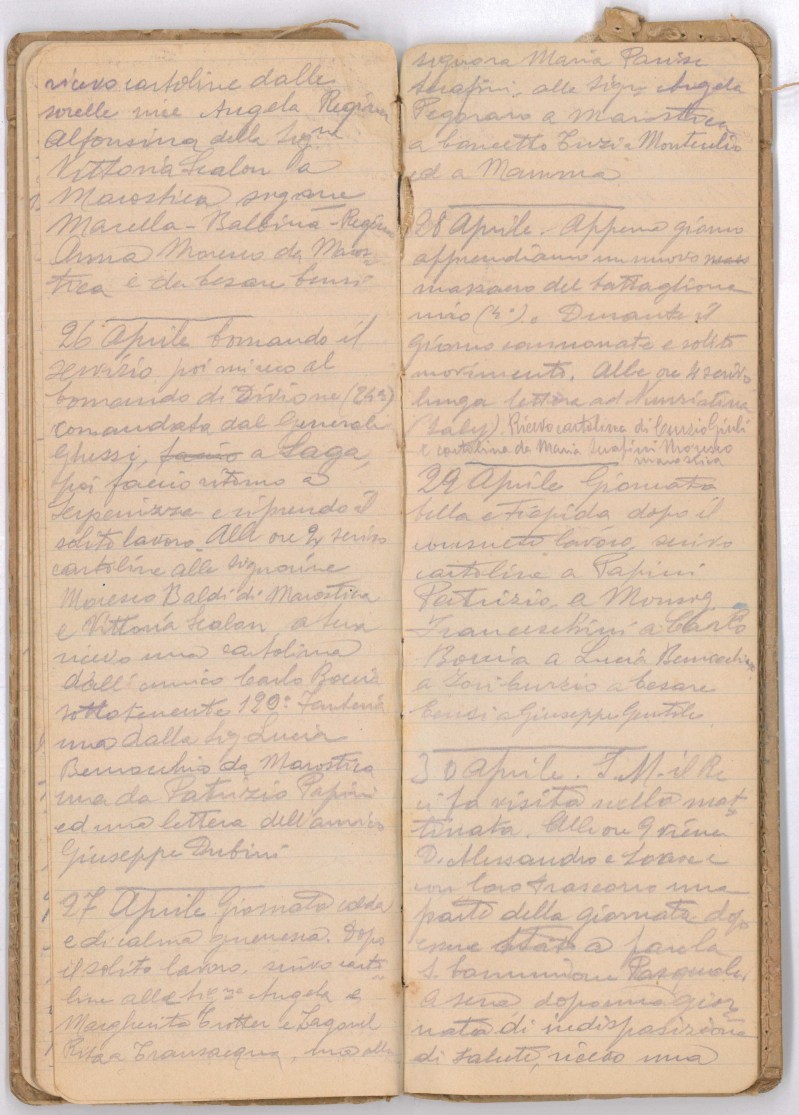 ricevo cartoline dalle
sorelle mie Angela Regina
Alfonsina della Sig.ra
Vittoria Scalon a
Marostica signore
Marcella - Balbina - Regina
Anna Moresco da Maros-
tica e da Cesare Censi
26 Aprile Comando il
servizio poi mi reco al
Comando di Divisione (24ª)
comandata dal Generale
Ghersi, faccio a Saga,
poi faccio ritorno a
Serpenizza e riprendo il
solito lavoro. Alle ore 2½ scrivo
cartoline alle signorine
Moresco Baldi di Marostica
e Vittoria Scalon, a sera
ricevo una cartolina
dall'amico Carlo Boccia
sottotenente 120° Fanteria
una dalla Sig Lucia
Bernacchio da Marostica
una da Patrizio Papini
ed una lettera dell'amico
Giuseppe Dubini
27 Aprile Giornata calda
e di calma guerresca. Dopo
il solito lavoro. scrivo carto
line alle Sig.ne Angela e
Margherita Trotter e
Rita a Transacqua, una alla
signora Maria Parise
Serafini, alle Sign Angela
Pegoraro a Marostica
a Concetto Curzi a Monteulio
ed a Mamma
28 Aprile. Appena giorno
apprendiamo un nuovo
massacro del battaglione
mio (4°). Durante il
giorno cannonate e solito
movimento. Alle ore 4 scrivo
lunga lettera ad Nunziatina
(Laly). Ricevo cartolina di Curzio Giuli
e cartolina da Maria Serafini Moresco
marostica
29 Aprile Giornata
bella e tiepida dopo il
consueto lavoro, scrivo
cartoline a Papini
Patrizio, a Monsig
Franceschini a Carlo
Boccia a Lucia Bernacchio
a Curzio a Cesare
Censi a Giuseppe Gentile
30 Aprile. S. M. il Re
ci fa visita nella mat
tinata. Alle ore 9 viene
D. Alessandro e
con loro trascorro una
parte della giornata dopo
essere stato a far la
S. Comunione Pasquale.
A sera dopo una gior
nata di indisposizione
di salute, ricevo una